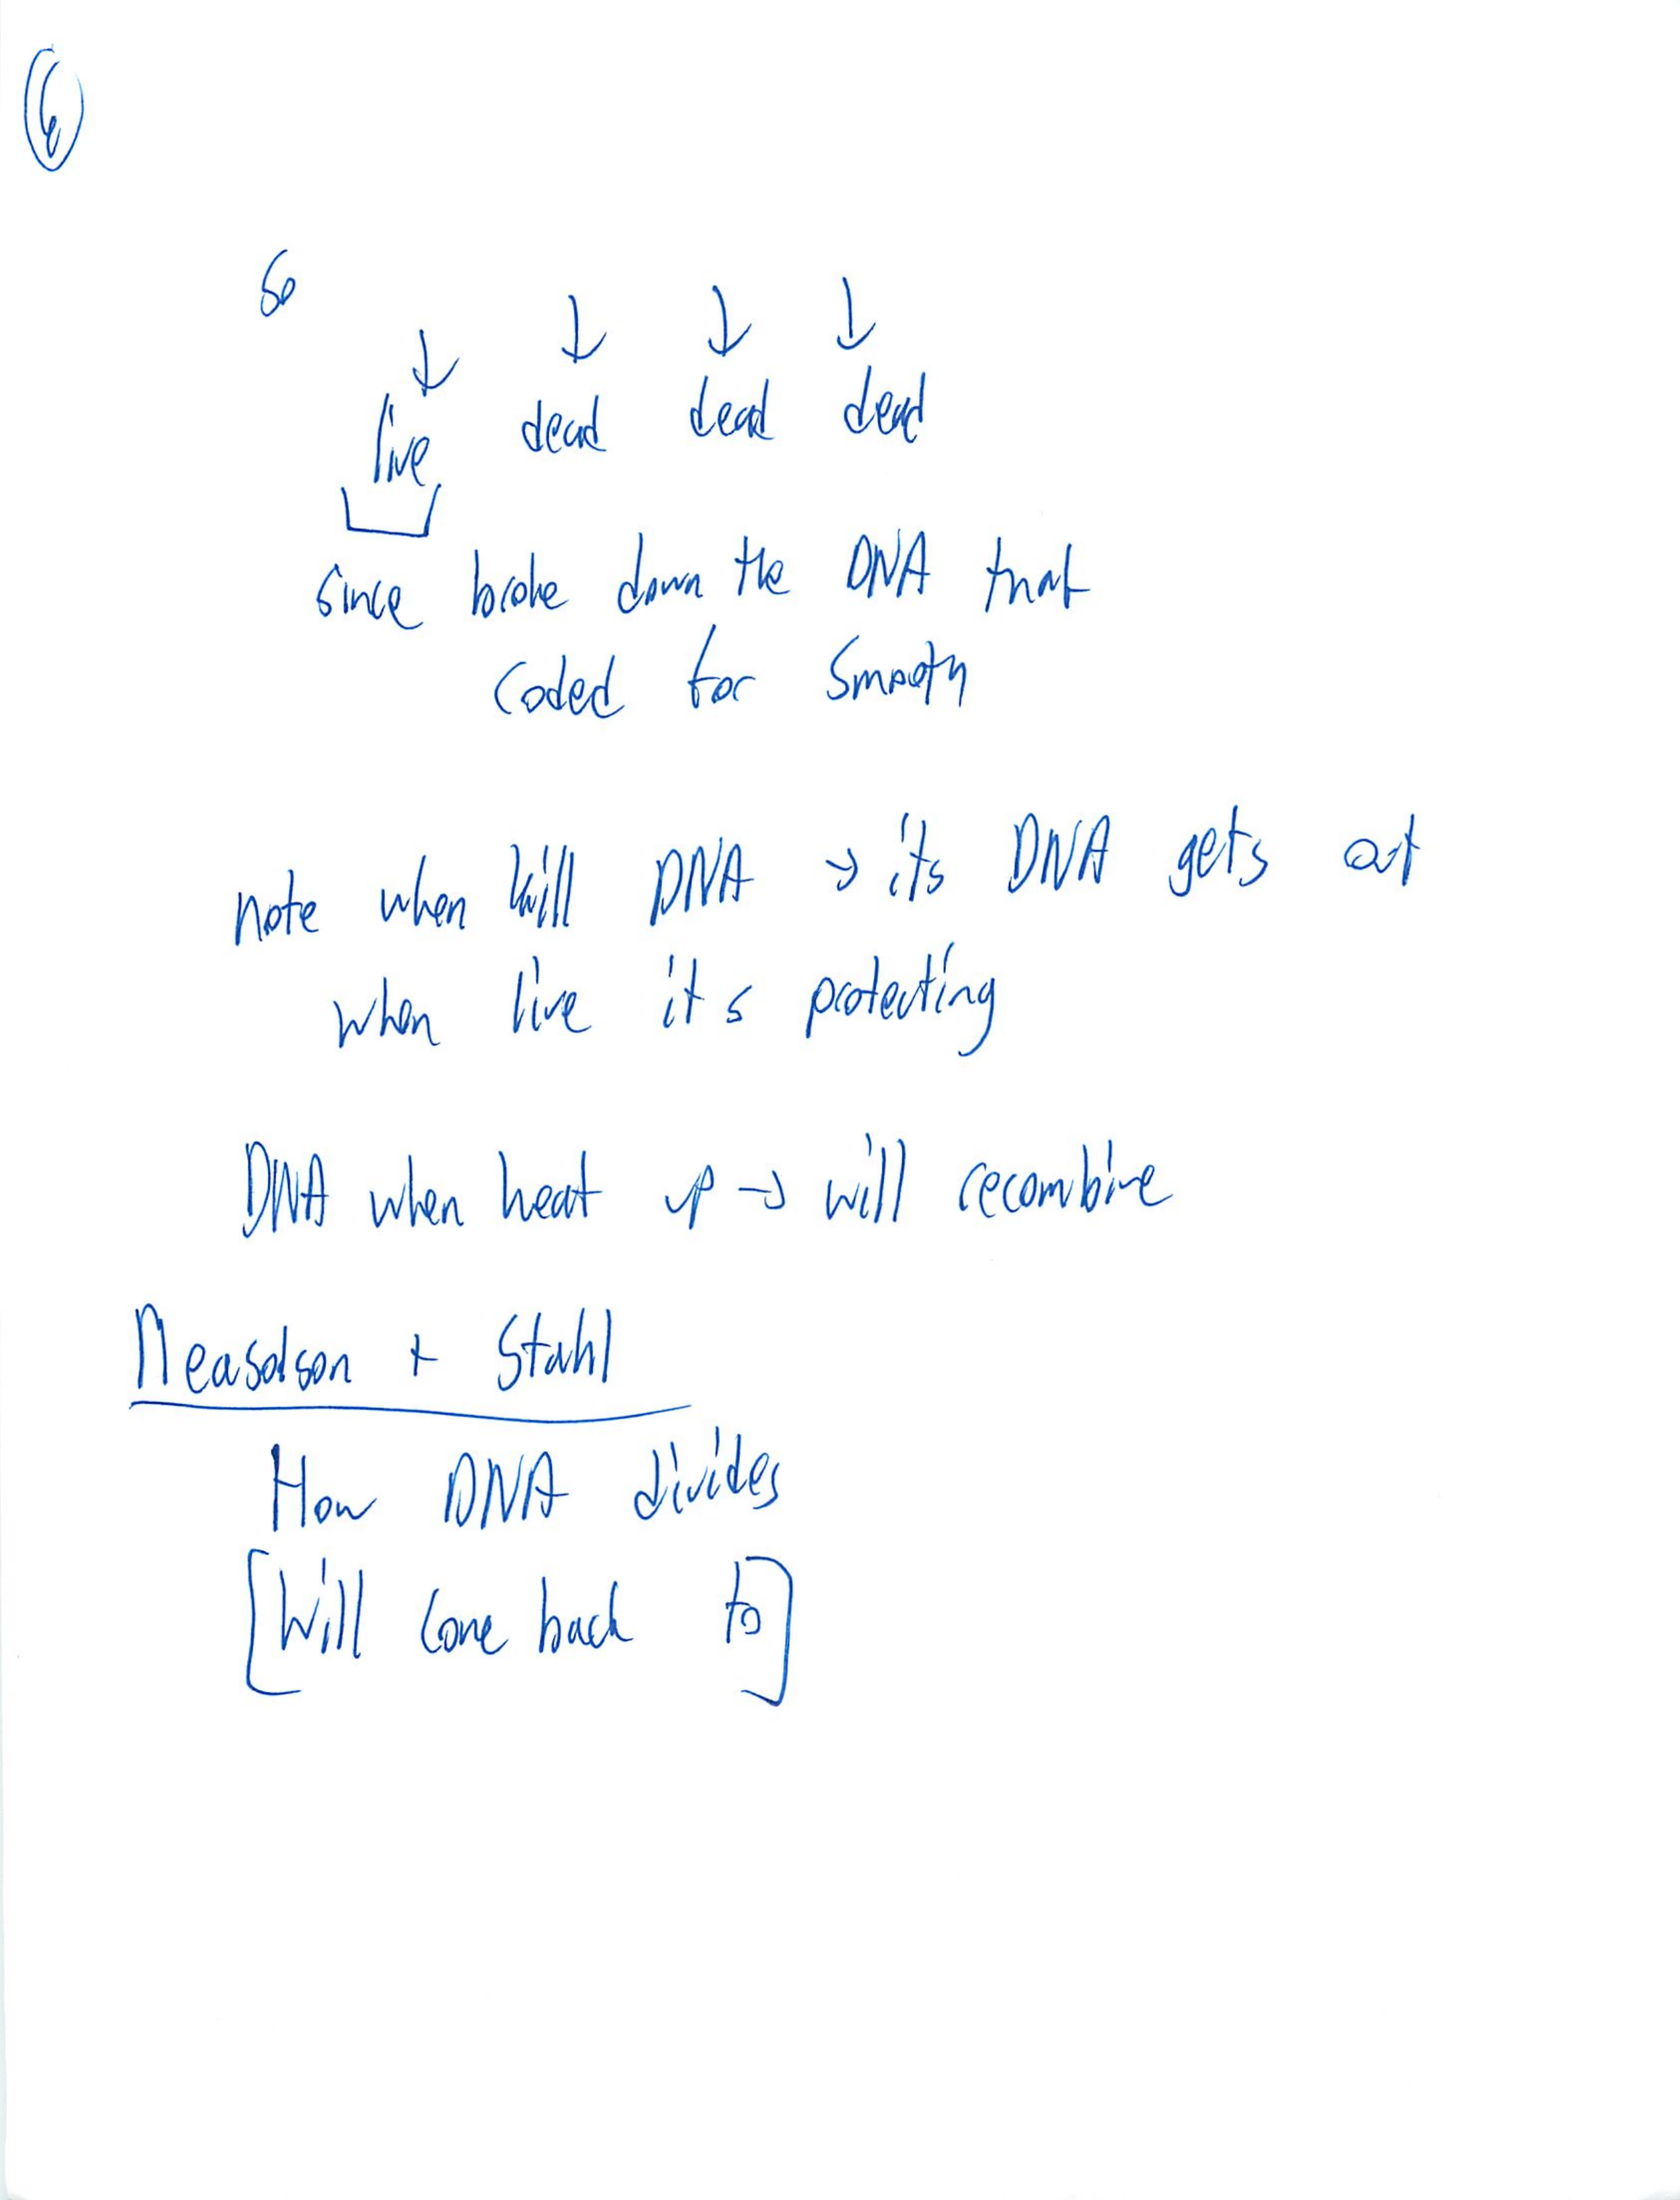 6
So
↓ ↓ ↓ ↓
live dead dead dead
since broke down the DNA that
coded for smooth
note when kill DNA → its DNA gets out
when live it's protecting
DNA when heat up → will recombine
Measolson + Stahl
How DNA divides
[Will come back to]